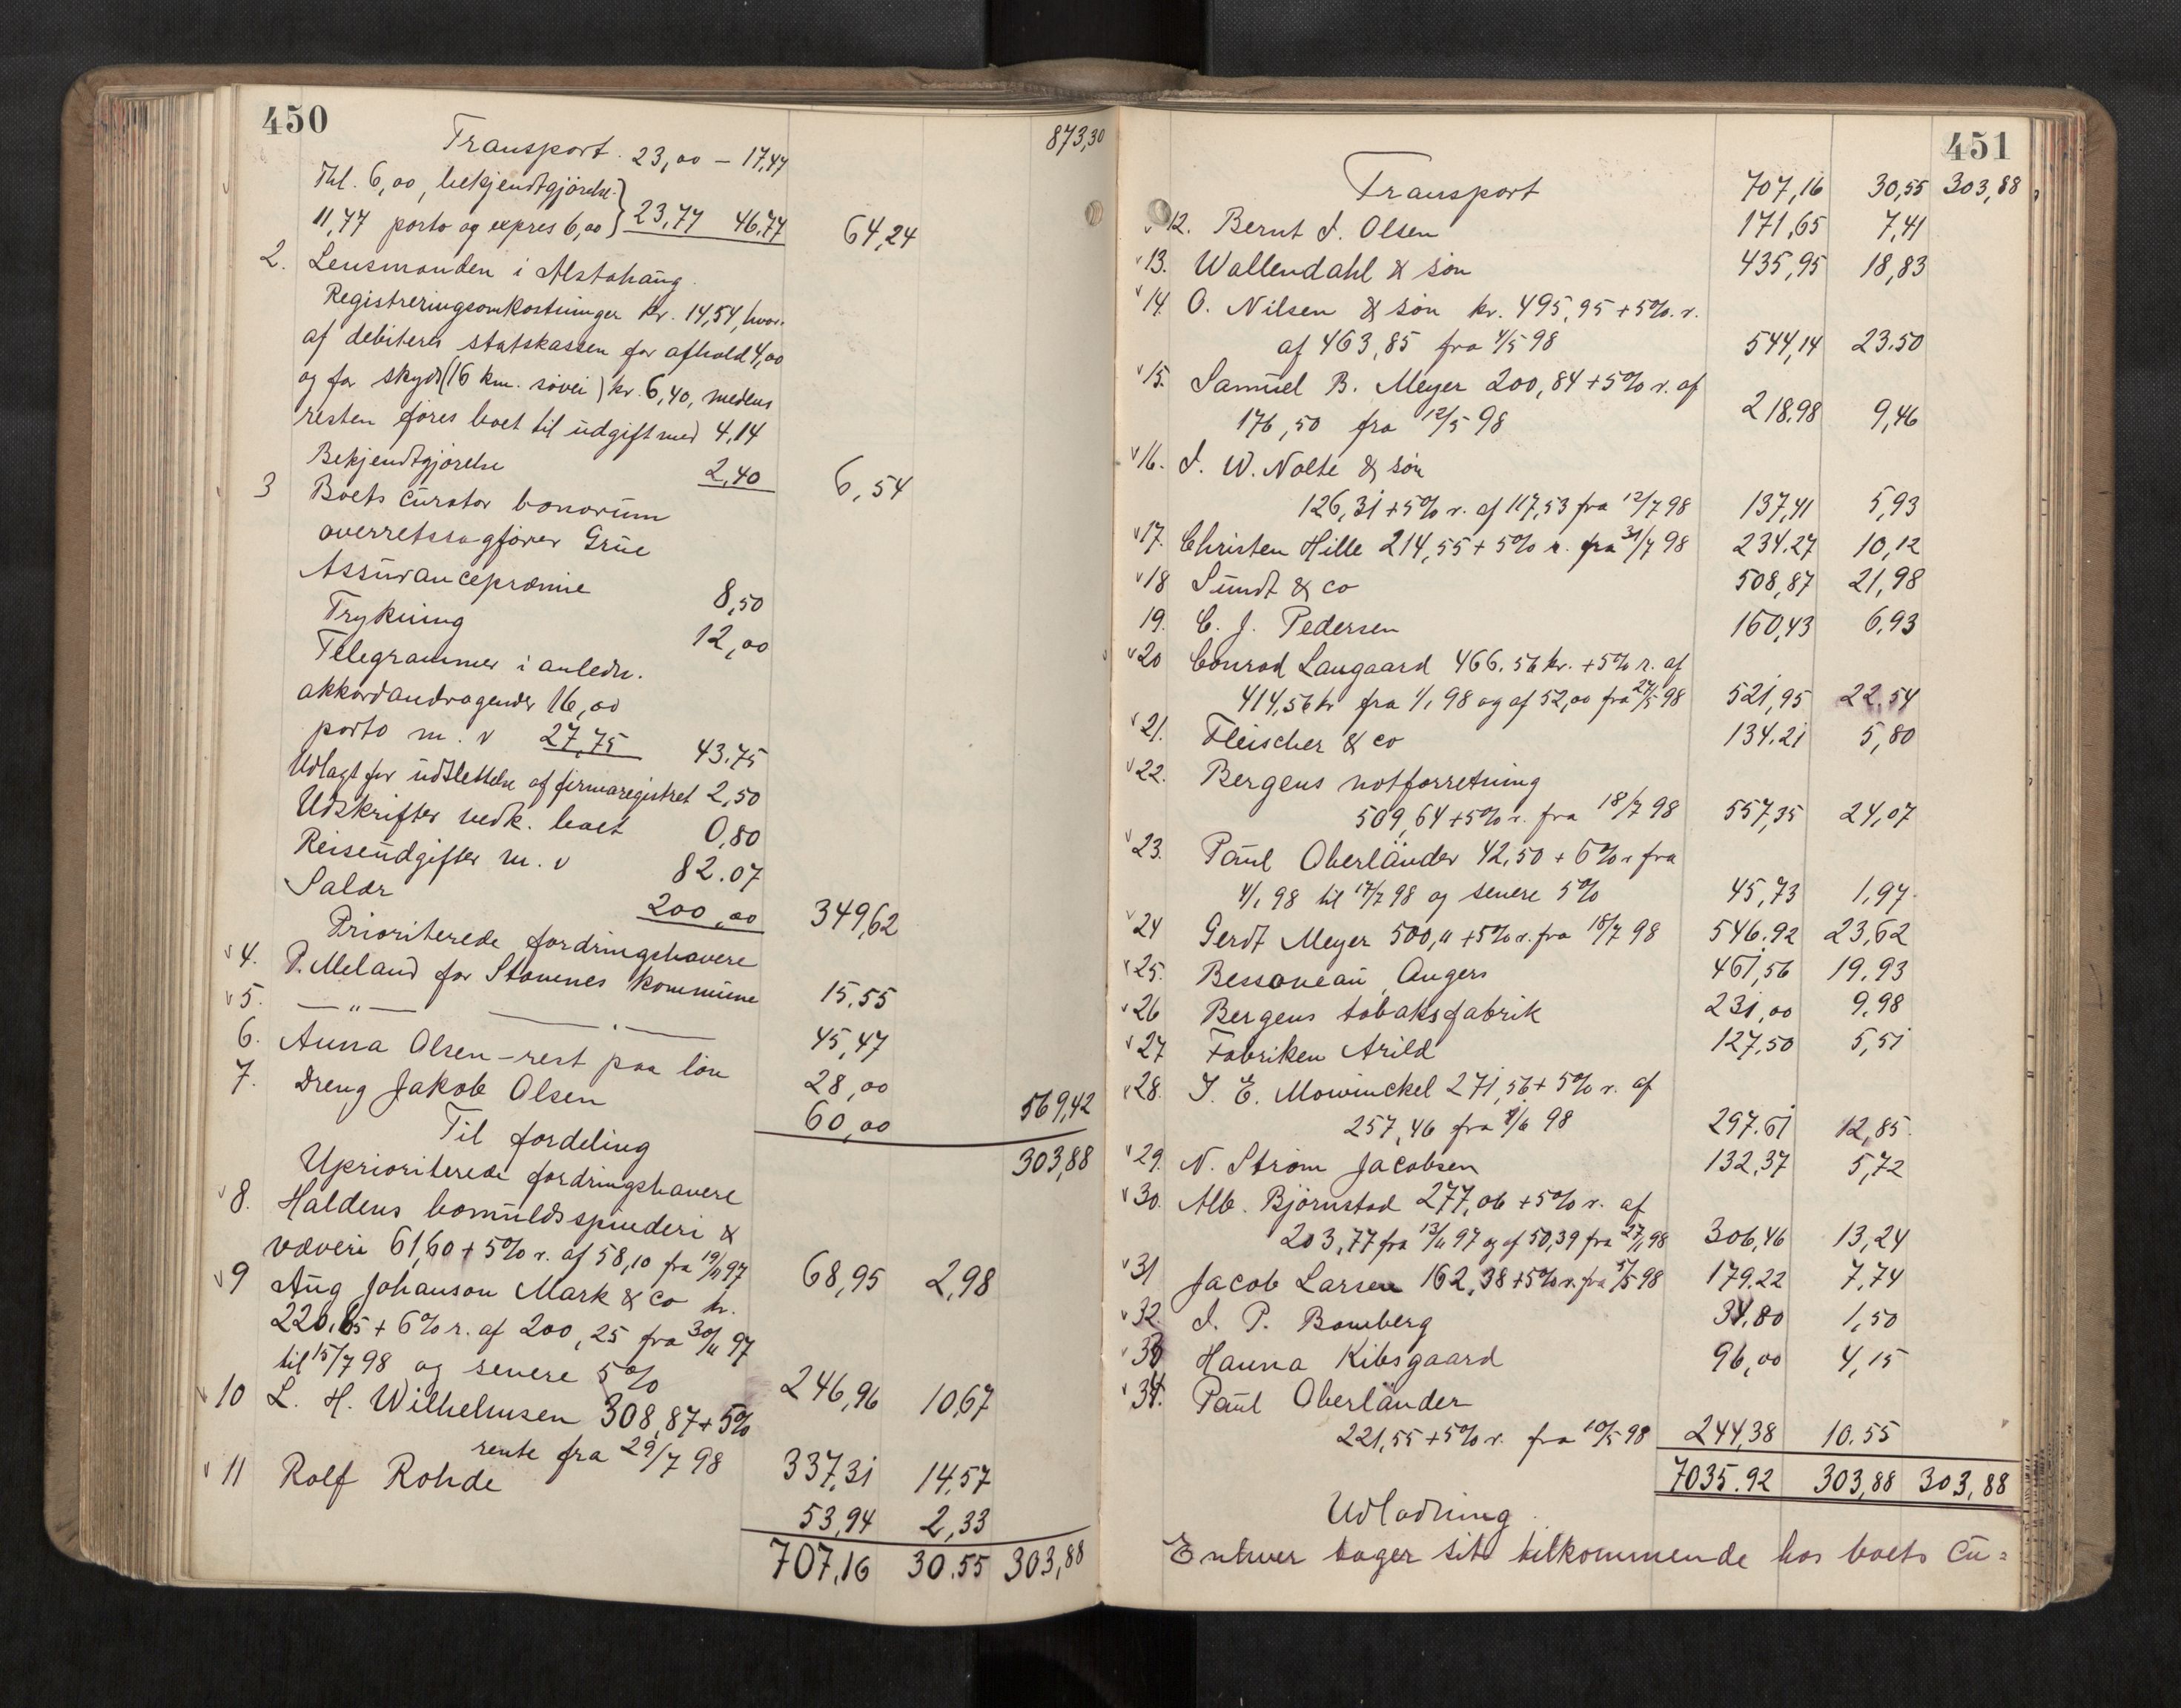 450
Transport. 23,00 – 17,47 873,30
Thl. 6,00, bekjendtgjörelse
11,77 porto og expres 6,00 } 23,77 46,77 64,24
2. Lensmanden i Alstahaug.
Registreringsomkostninger kr. 14,54, hvor-
af debiteres statskassen for afhold 4,00
og for skyds (16 km. sövei) kr. 6,40, medens
resten föres boet til udgift med 4,14
Bekjendtgjörelse 2,40 6,54
3 Boets curator bonorum
overretssagförer Grüe
Assürancepræmie 8,50
Trykning 12,00
Telegrammer i anledn.
akkordandragender 16,00
porto m. v 27,75 43,75
Udlagt for udslettelse af firmaregistret 2,50
Udskrifter vedk. boet 0,80
Reiseudgifter m. v 82.07
Salær 200,00 349,62
Prioriterede fordringshavere
v 4. P. Meland for Stamnes kommune 15,55
v 5. —"— —"— 45,47
6. Anna Olsen – rest paa lön 28,00
7. Dreng Jakob Olsen 60,00 569,42
Til fordeling 303,88
Uprioriterede fordringshavere
v 8. Haldens bomuldsspinderi &
væveri 61,60 + 5% r. af 58,10 fra 19/11 97 68,95 2,98
v 9 Aug Johanson Mark & Co kr.
220,65 + 6% r. af 200,25 fra 30/11 97
til 15/7 98 og senere 5% 246,96 10,67
v 10 L. H. Wilhelmsen 308,87 + 5%
rente fra 29/7 98 337,31 14,57
v 11 Rolf Rohde 53,94 2,33
707,16 30.55 303,88
451
Transport 707,16 30,55 303,88
v 12. Bernt J. Olsen 171,65 7,41
v 13. Wallendahl & sön 435,95 18,83
v 14. O. Nilsen & sön kr. 495,95 + 5%. r.
af 463,85 fra 4/5 98 544,14 23.50
v 15. Samuel B. Meyer 200,84 + 5% r. af
176,50 fra 12/5 98 218.98 9,46
v 16. J. W. Nolte & sön
126,31 + 5% r. af 117,53 fra 12/7 98 137,41 5,93
v 17. Christen Hille 214,55 + 5% r. fra 31/7 98 234.27 10,12
v 18 Sundt & co 508,87 21,98
19. C. J. Pedersen 160,43 6,93
v 20 Conrad Langaard 466.56 kr. + 5% r. af
414,56 kr fra 1/1 98 og af 52,00 fra 27/5 98 521,95 22,54
v 21. Fleischer & co 134.21 5,80
v 22. Bergens notforretning
509,64 + 5% r. fra 18/7 98 557,35 24,07
v 23. Paul Oberländer 42,50 + 6% r fra
4/1 98 til 17/7 98 og senere 5% 45,73 1,97.
v 24 Gerdt Meyer 500,11 + 5% r. fra 18/7 98 546.92 23,62
v 25. Bessoneau, Angers 461,56 19.93
v 26 Bergens tobaksfabrik 231,00 9,98
v 27 Fabriken Arild 127,50 5,51
v 28. J. E. Mowinckel 271,56 + 5% r. af
257,46 fra 8/6 98 297.61 12,85.
v 29. N. Ström Jacobsen 132,37 5,72
v 30. Alb. Björnstad 277,06 + 5% r. af
203,77 fra 13/11 97 og af 50,39 fra 27/1 98 306,46 13,24
v 31 Jacob Larsen 162,38 + 5% r. fra 5/5 98 179.22 7,74
v 32. J. P. Bomberg 34.80 1,50
v 33 Hanna Kibsgaard 96,00 4,15
v 34. Paul Oberländer
221,55 + 5% r. fra 10/5 98 244,38 10.55
7035.92 303,88 303,88
Udlodning.
Enhver tager sit tilkommende hos boets cu=